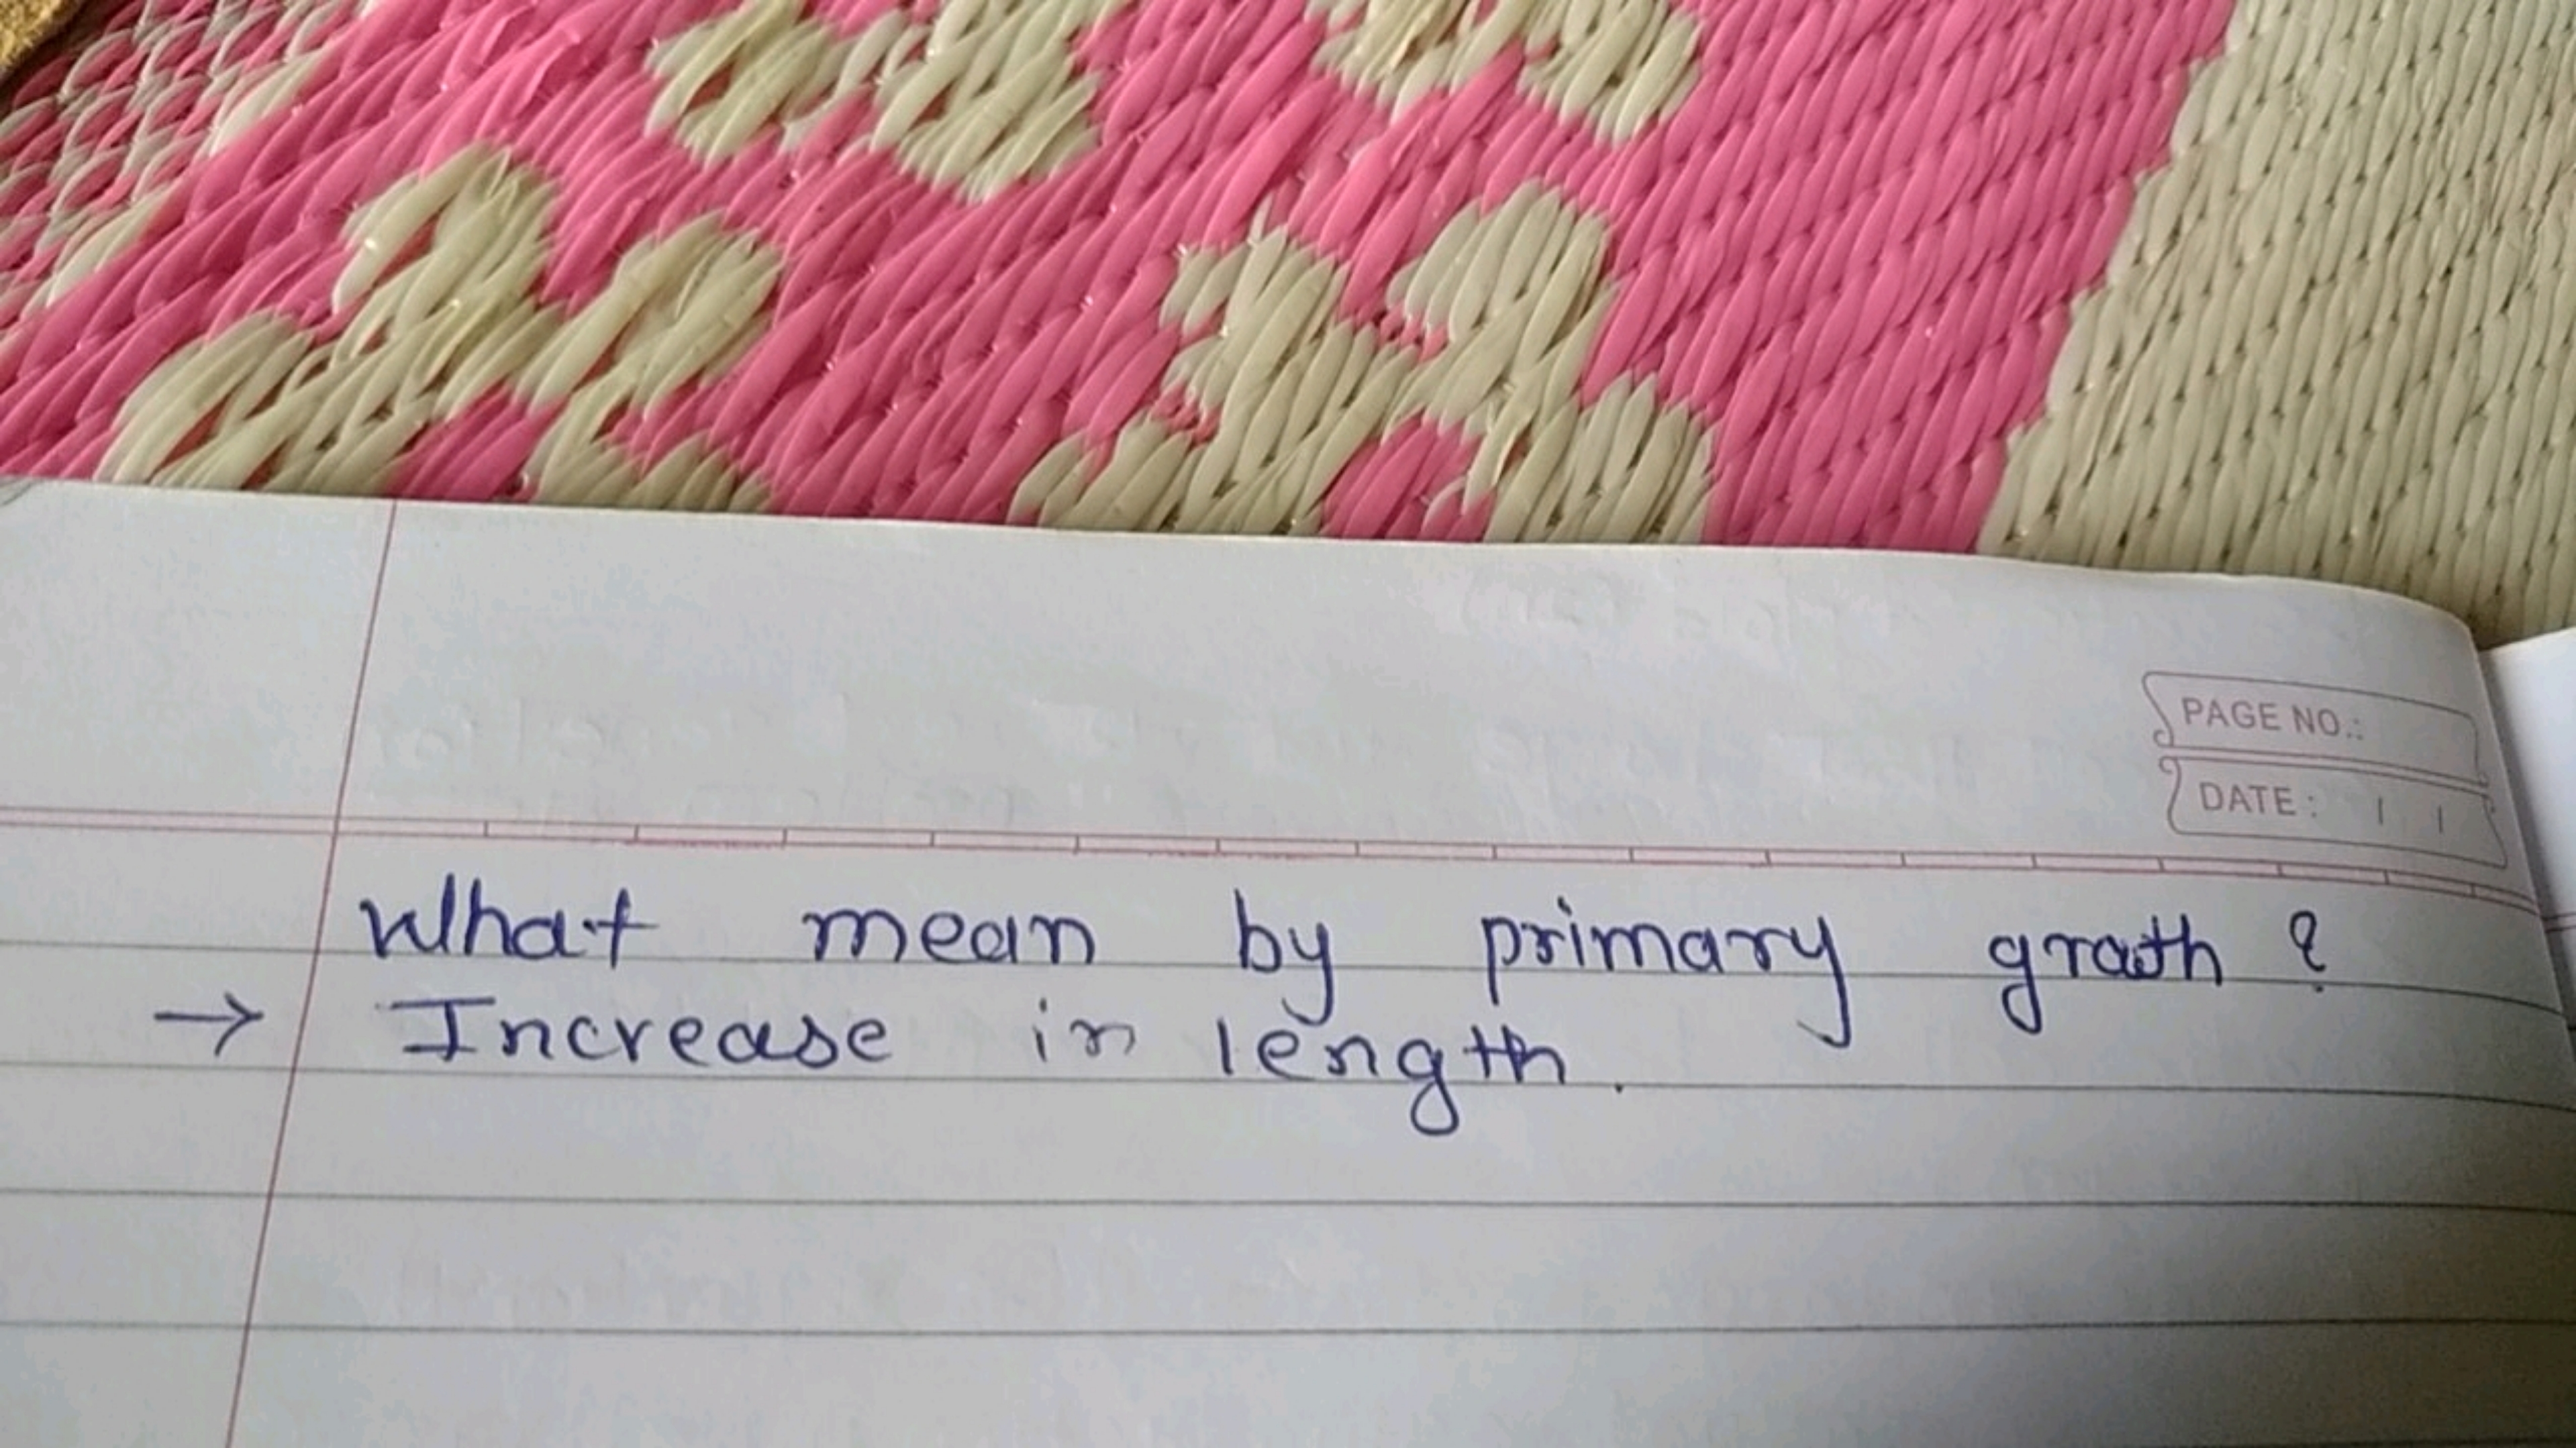 PAGE NO.:
DATE: / /
What mean by primary grath ?
→ Increase in length.